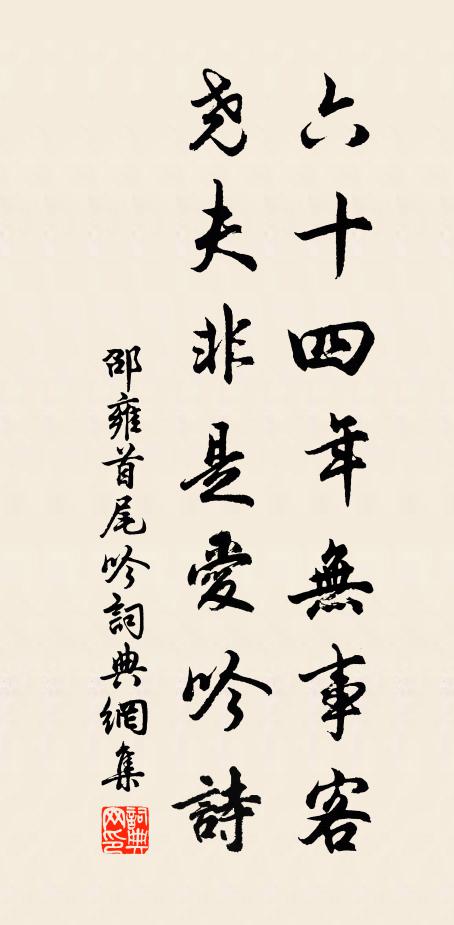 六十四年無事客
堯夫非是愛吟詩
邵雍首尾吟詞典網集
詞典网印